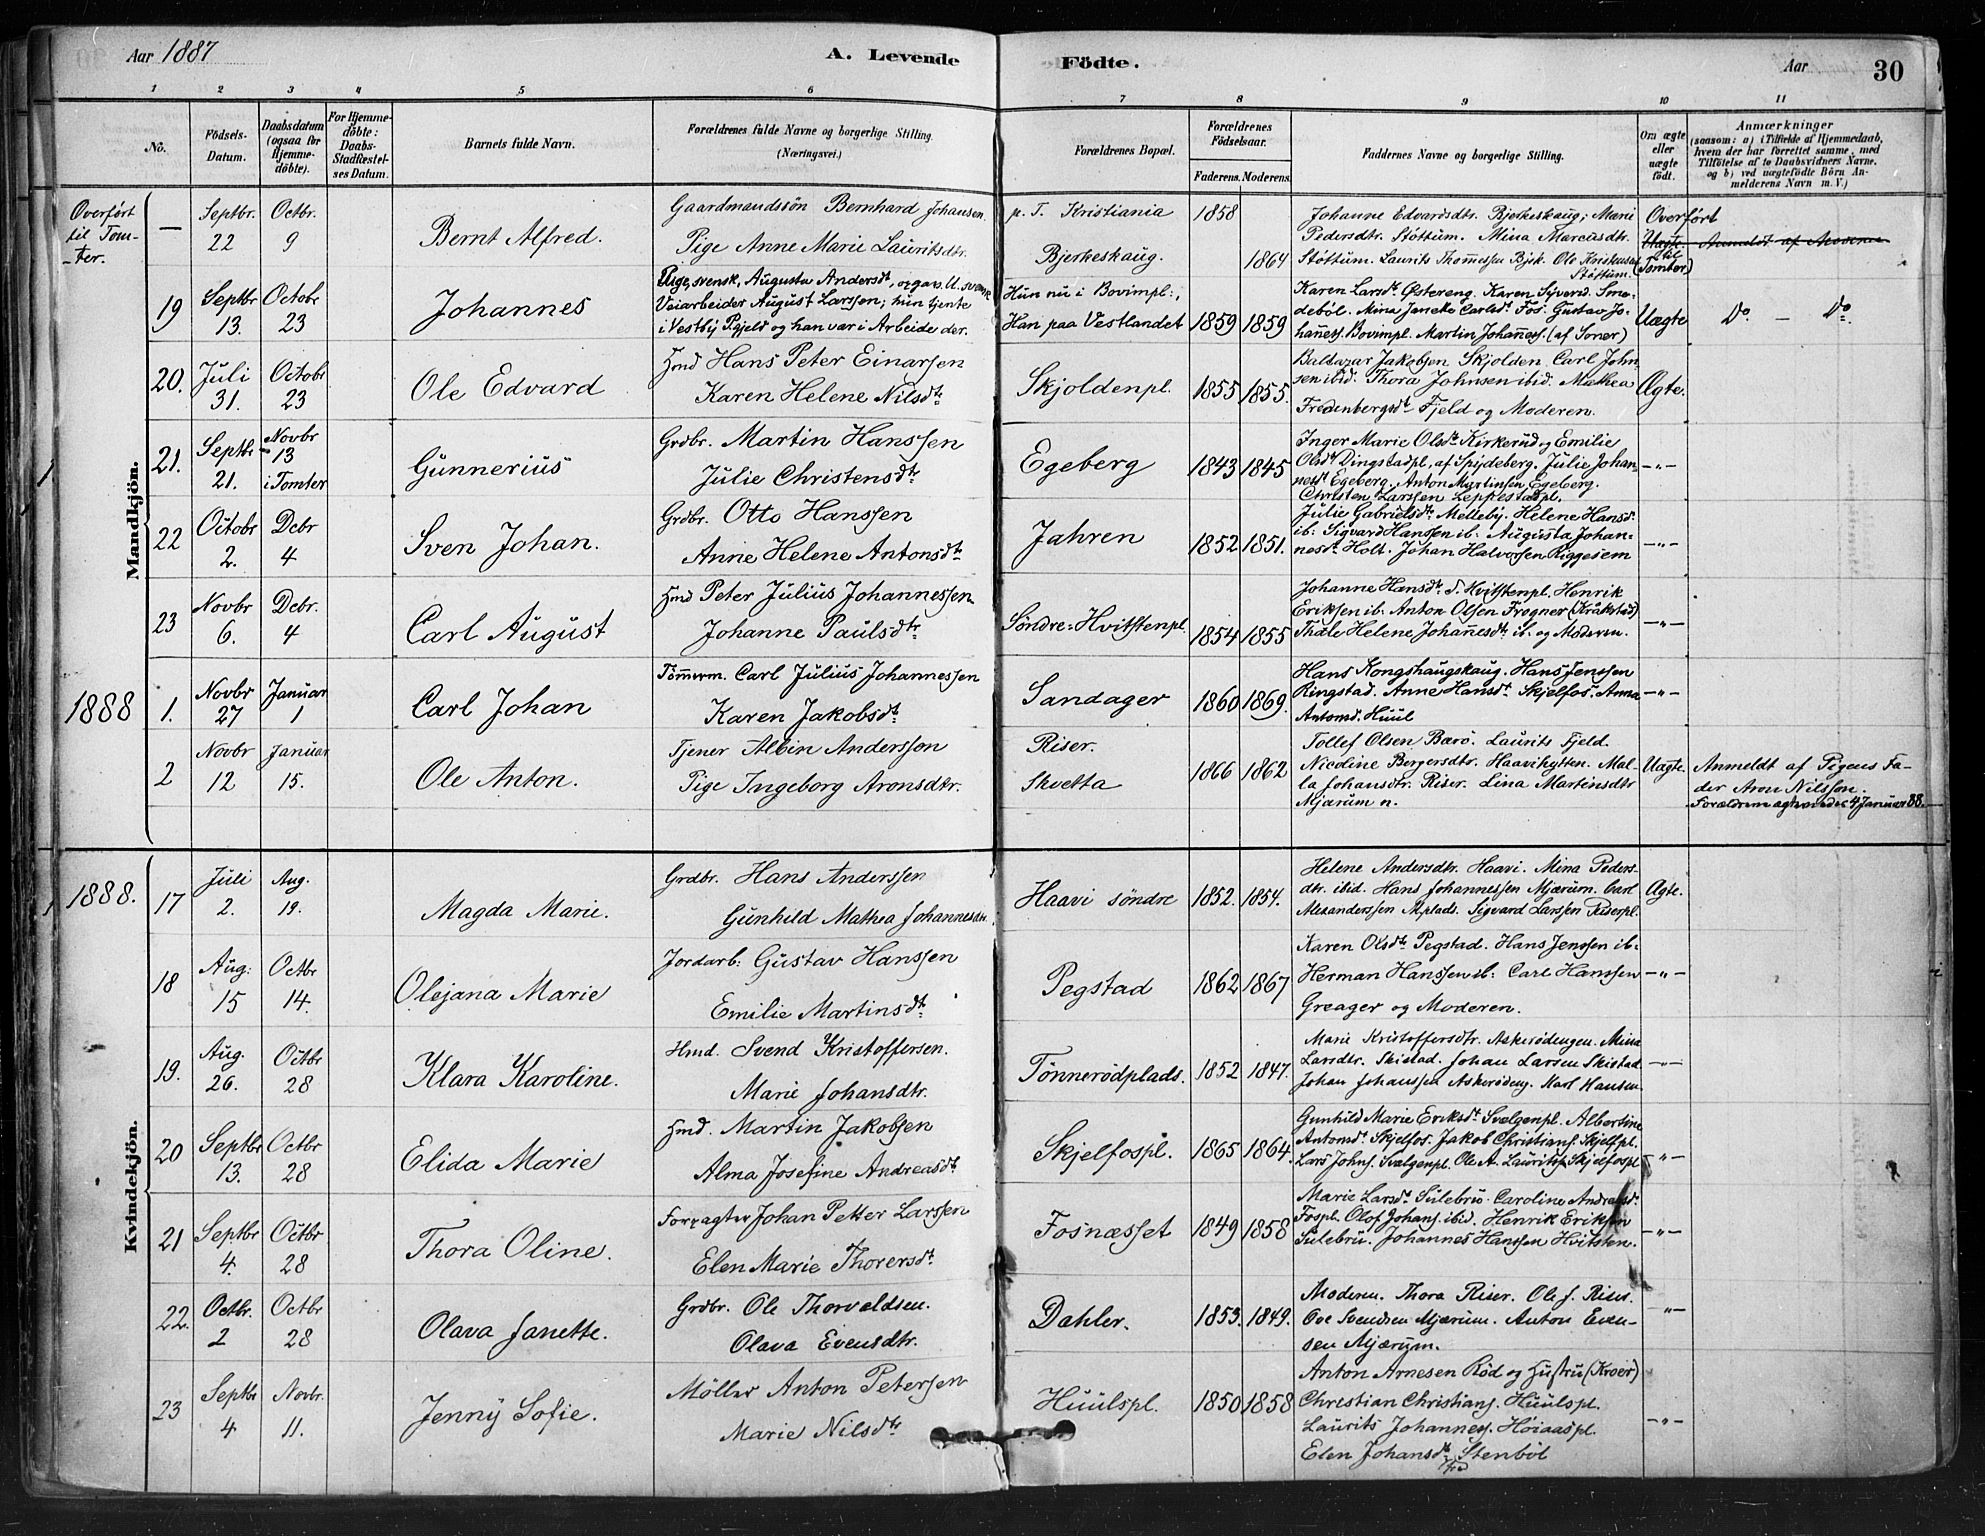 Aar 1887
A. Levende
Födte.
Aar
30
1 2 3 4 5 6 7 8 9 10 11
No.
Födsels-Datum.
Daabsdatum (ogsaa for Hjemmedöbte).
For Hjemmedöbte: Daabs-Stadfæstelses Datum.
Barnets fulde Navn.
Forældrenes fulde Navne og borgerlige Stilling. (Næringsvei.)
Forældrenes Bopæl.
Forældrenes Födselsaar.
Faderens. Moderens.
Faddernes Navne og borgerlige Stilling.
Om ægte eller uægte födt.
Anmærkninger
(saasom: a) i Tilfælde af Hjemmedaab, hvem der har forrettet samme, med Tilföielse af to Daabsvidners Navne. og b) ved uægtefödte Börn Anmelderens Navn m. V.)
Mandkjön.
Overført til Tomter.
—
Septbr. 22
Octbr. 9
Bernt Alfred.
Gaardmandssön Bernhard Johansen.
Pige Anne Marie Lauritsdtr.
p. T. Kristiania
Bjerkeskaug.
1858
1864
Johanne Edvardsdtr. Bjerkeskaug; Marie
Pedersdtr. Støttum. Mina Marcusdtr.
Støttum. Laurits Thomessen Bjsk. Ole Kristiansen
Støttum.
Overført
Uægte. til
(Tomter)
Anmeldt af Moderen
19
Septbr 13.
Octobr 23
Johannes
Pige, svensk, Augusta Andersdt, og av. U. svensk
Veiarbeider August Larssen; hun tjente
i Vestby Pgjeld og han var i Arbeide der.
Hun nu i Bovimpl:,
Han paa Vestlandet
1859 1859
Karen Larsdt Østereng. Karen Syverid. Smedeböl. Mina Jenseke Carlsdt Fos. Gustav Johaness. Bovimpl. Martin Johaness. (af Soner)
Uægte
Do — Do.
20.
Juli 31.
Octobr 23
Ole Edvard
Hmd Hans Peter Einarsen
Karen Helene Nilsdtr
Skjoldenpl.
1855 1855.
Baldazar Jakobsen Skjolden Carl Johnsen ibid. Thora Johnsen ibid. Mathea
Fredenbergsdt Fjeld og Moderen.
Ægte.
21.
Septbr 21.
Novbr 13 i Tomter
Gunnerius
Grdbr. Martin Hanssen
Julie Christensdtr
Egeberg
1843 1845
Inger Marie Olsdtr Kirkerud og Emilie
Olsdt Dingstadpl, af Spydeberg. Julie Johannesdt Egeberg. Anton Martinsen Egeberg.
Christen Larssen Leppestadpl.
—"—
22
Octobr 2.
Debr 4
Sven Johan.
Grdbr. Otto Hanssen
Anne Helene Antonsdtr
Jahren
1852 1851.
Julie Gabrielsdt. Melleby. Helene Hansd.
ib: Sigvard Hanssen ib: Augusta Johannesdt Holt. Johan Halvorsen Riggesem
—"—
23
Novbr 6.
Debr. 4
Carl August
Hmd Peter Julius Johannessen
Johanne Paulsdtr
Söndre-Hvitstenpl.
1854 1855
Johanne Hansdt S. Hvitstenpl. Henrik
Eriksen ib: Anton Olsen Frogner (Kråkstad)
Thale Helene Johanesdt ib. og Moderen.
—"—
1888
1.
Novbr 27
Januar 1
Carl Johan
Tömmerm. Carl Julius Johannessen
Karen Jakobsdtr
Sandager
1860 1869.
Hans Kongshaugskaug. Hans Jenssen
Ringstad. Anne Hansdt Skjelfos. Anna
Antonsd. Huul
—"—
2
Novbr 12
Januar 15.
Ole Anton.
Tjener Albin Andersson
Pige Ingeborg Aronsdtr.
Riser.
Skvetta
1866 1862
Tollef Olsen Barö. Laurits Fjeld.
Nicoline Bergersdtr. Haavihytten. Malla Johansdtr. Riser. Lina Martinsdtr
Mjærum n.
Uægte.
Anmeldt af Pigens Fader Aron Nilssen.
Forældrene ægteviedes 4 Januar 88.
Kvindekjön.
1888.
17
Juli 2.
Aug. 19.
Magda Marie.
Grdbr. Hans Anderssen
Gunhild Mathea Johannesdtr.
Haavi söndre
1852. 1854.
Helene Andersdtr. Haavi. Mina Pedersdtr. ibid. Hans Johannessen Mjærum. Carl
Alexanderssen Aplads. Sigvard Larssen Riserpl.
Ægte.
18
Aug: 15
Octbr 14.
Olejana Marie
Jordarb: Gustav Hanssen
Emilie Martinsdtr
Pegstad
1862 1867
Karen Olsdtr Pegstad. Hans Jenssen ib:
Herman Hanssen ib: Carl Hanssen
Greager og Moderen.
—"—
19.
Aug. 26.
Octbr 28
Klara Karoline.
Hmd. Svend Kristoffersen.
Marie Johansdtr.
Tönnerödplads.
1852 1847.
Marie Kristoffersdtr. Askerödengen. Mina
Larsdtr. Skistad. Johan Larsen Skistad
Johan Johanssen Askerödeng. Karl Hansen
—"—
20
Septbr 13.
Octbr 28
Elida Marie
Hmd. Martin Jakobsen
Alma Josefine Andreasdtr
Skjelfospl.
1865 1864.
Gunhild Marie Eriksdt Svælgenpl. Albertine
Antonsdt Skjelfos. Jakob Christians. Skjelfpl.
Lars Johns. Svælgenpl. Ole A. Lauritss Skjelfospl
—"—
21
Septbr 4.
Octbr 28
Thora Oline.
Forpagter Johan Petter Larssen
Elen Marie Thorersdt.
Fosnæsset
1849 1858
Marie Larsdt Sulebru. Caroline Andreasdt
Fospl. Olof Johans. ibid. Henrik Eriksen
Sulebru. Johannes Hanssen Hvitsten.
—"—
22.
Octbr. 2
Octbr 28
Olava Janette.
Grdbr. Ole Thorvaldsen.
Olava Evensdtr.
Dahler.
1853. 1849.
Moderen. Thora Riser. Ole J. Riser.
Ove Svendsen Mjærum. Anton Evensen Mjærum.
—"—
23
Septbr 4
Novbr. 11.
Jenny Sofie.
Möller Anton Petersen
Marie Nilsdtr
Huulspl.
1850 1858
Anton Arnesen Röd og Hustru (Kroer)
Christian Christians. Huulspl.
Laurits Johanness. Høiaaspl.
Elen Johansdt fra Stenböl
—"—